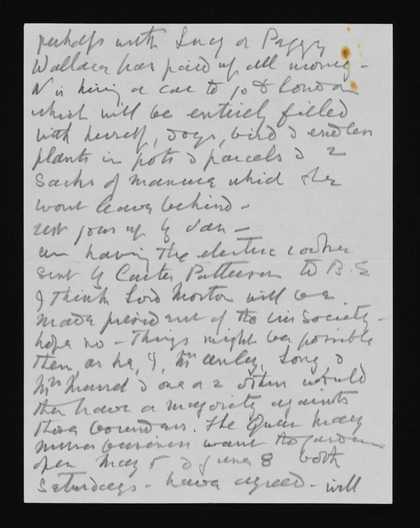 perhaps with Lucy or Peggy
Wallace has paid up all money -
N is hiring a car to go to London
which will be entirely filled
with herself, dogs, bird & endless
plants in pots & parcels & 2
Sacks of manure which she
wont leave behind -
rest goes up by van -
am having the electric cooker
sent by Carter Patterson to B.S
I think Lord Morton will be
made president of the Iris Society -
hope so - Things might be possible
then, as he, I, Mr Long &
Mrs & one or 2 others would
then have a majority against
those bounders. The Queen Mary
want the garden
open May 5 & June 8 both
Saturdays - have agreed - will